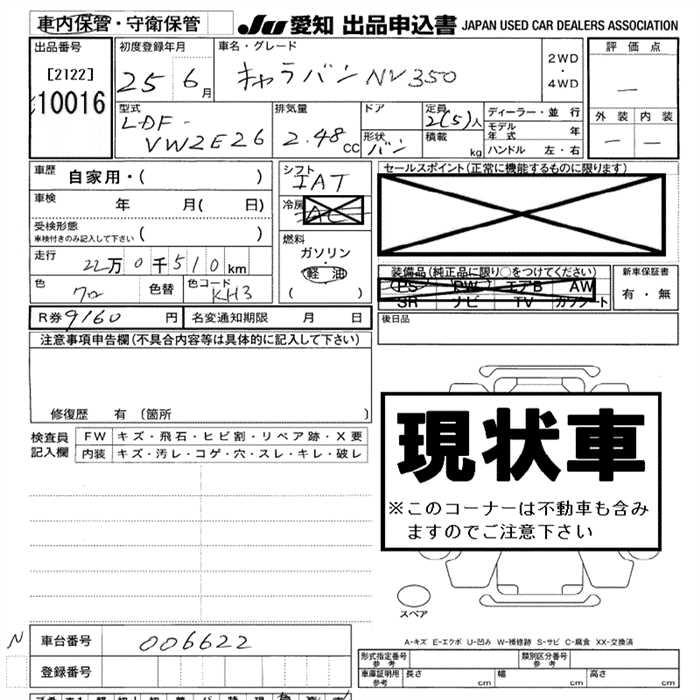 車内保管・守衛保管
JU 愛知 出品申込書 JAPAN USED CAR DEALERS ASSOCIATION
出品番号
[2122]
10016
初度登録年月
25 6月
車名・グレード
キャラバン NV350
2WD
・
4WD
評価点
—
外装 内装
— —
型式
LDF-
VW2E26
排気量
2.48 CC
ドア
形状
バン
定員
2(5)人
積載
kg
ディーラー・並行
モデル年式 年
ハンドル 左・右
車歴 自家用・( )
車検 年 月( 日)
受検形態
車検付きのみ記入して下さい ( )
走行 22万0千510km
色 クロ 色替 色コード KH3
シフト
IAT
冷房 AC
燃料
ガソリン
・
軽油
( )
セールスポイント(正常に機能するものに限ります)
装備品(純正品に限り○をつけてください)
PS PW エアB AW
SR ナビ TV カワシート
新車保証書
有・無
後日品
R券 9160 円 名変通知期限 月 日
注意事項申告欄(不具合内容等は具体的に記入して下さい)
修復歴 有 (箇所 )
検査員記入欄
FW キズ・飛石・ヒビ割・リペア跡・X要
内装 キズ・汚レ・コゲ・穴・スレ・キレ・破レ
現状車
※このコーナーは不動車も含み
ますのでご注意下さい
スペア
A-キズ E-エクボ U-凹み W-補修跡 S-サビ C-腐食 XX-交換済
N 車台番号 006622
登録番号
形式指定番号 参考 類別区分番号 参考
車庫証明用 参考 長さ cm 幅 cm 高さ cm